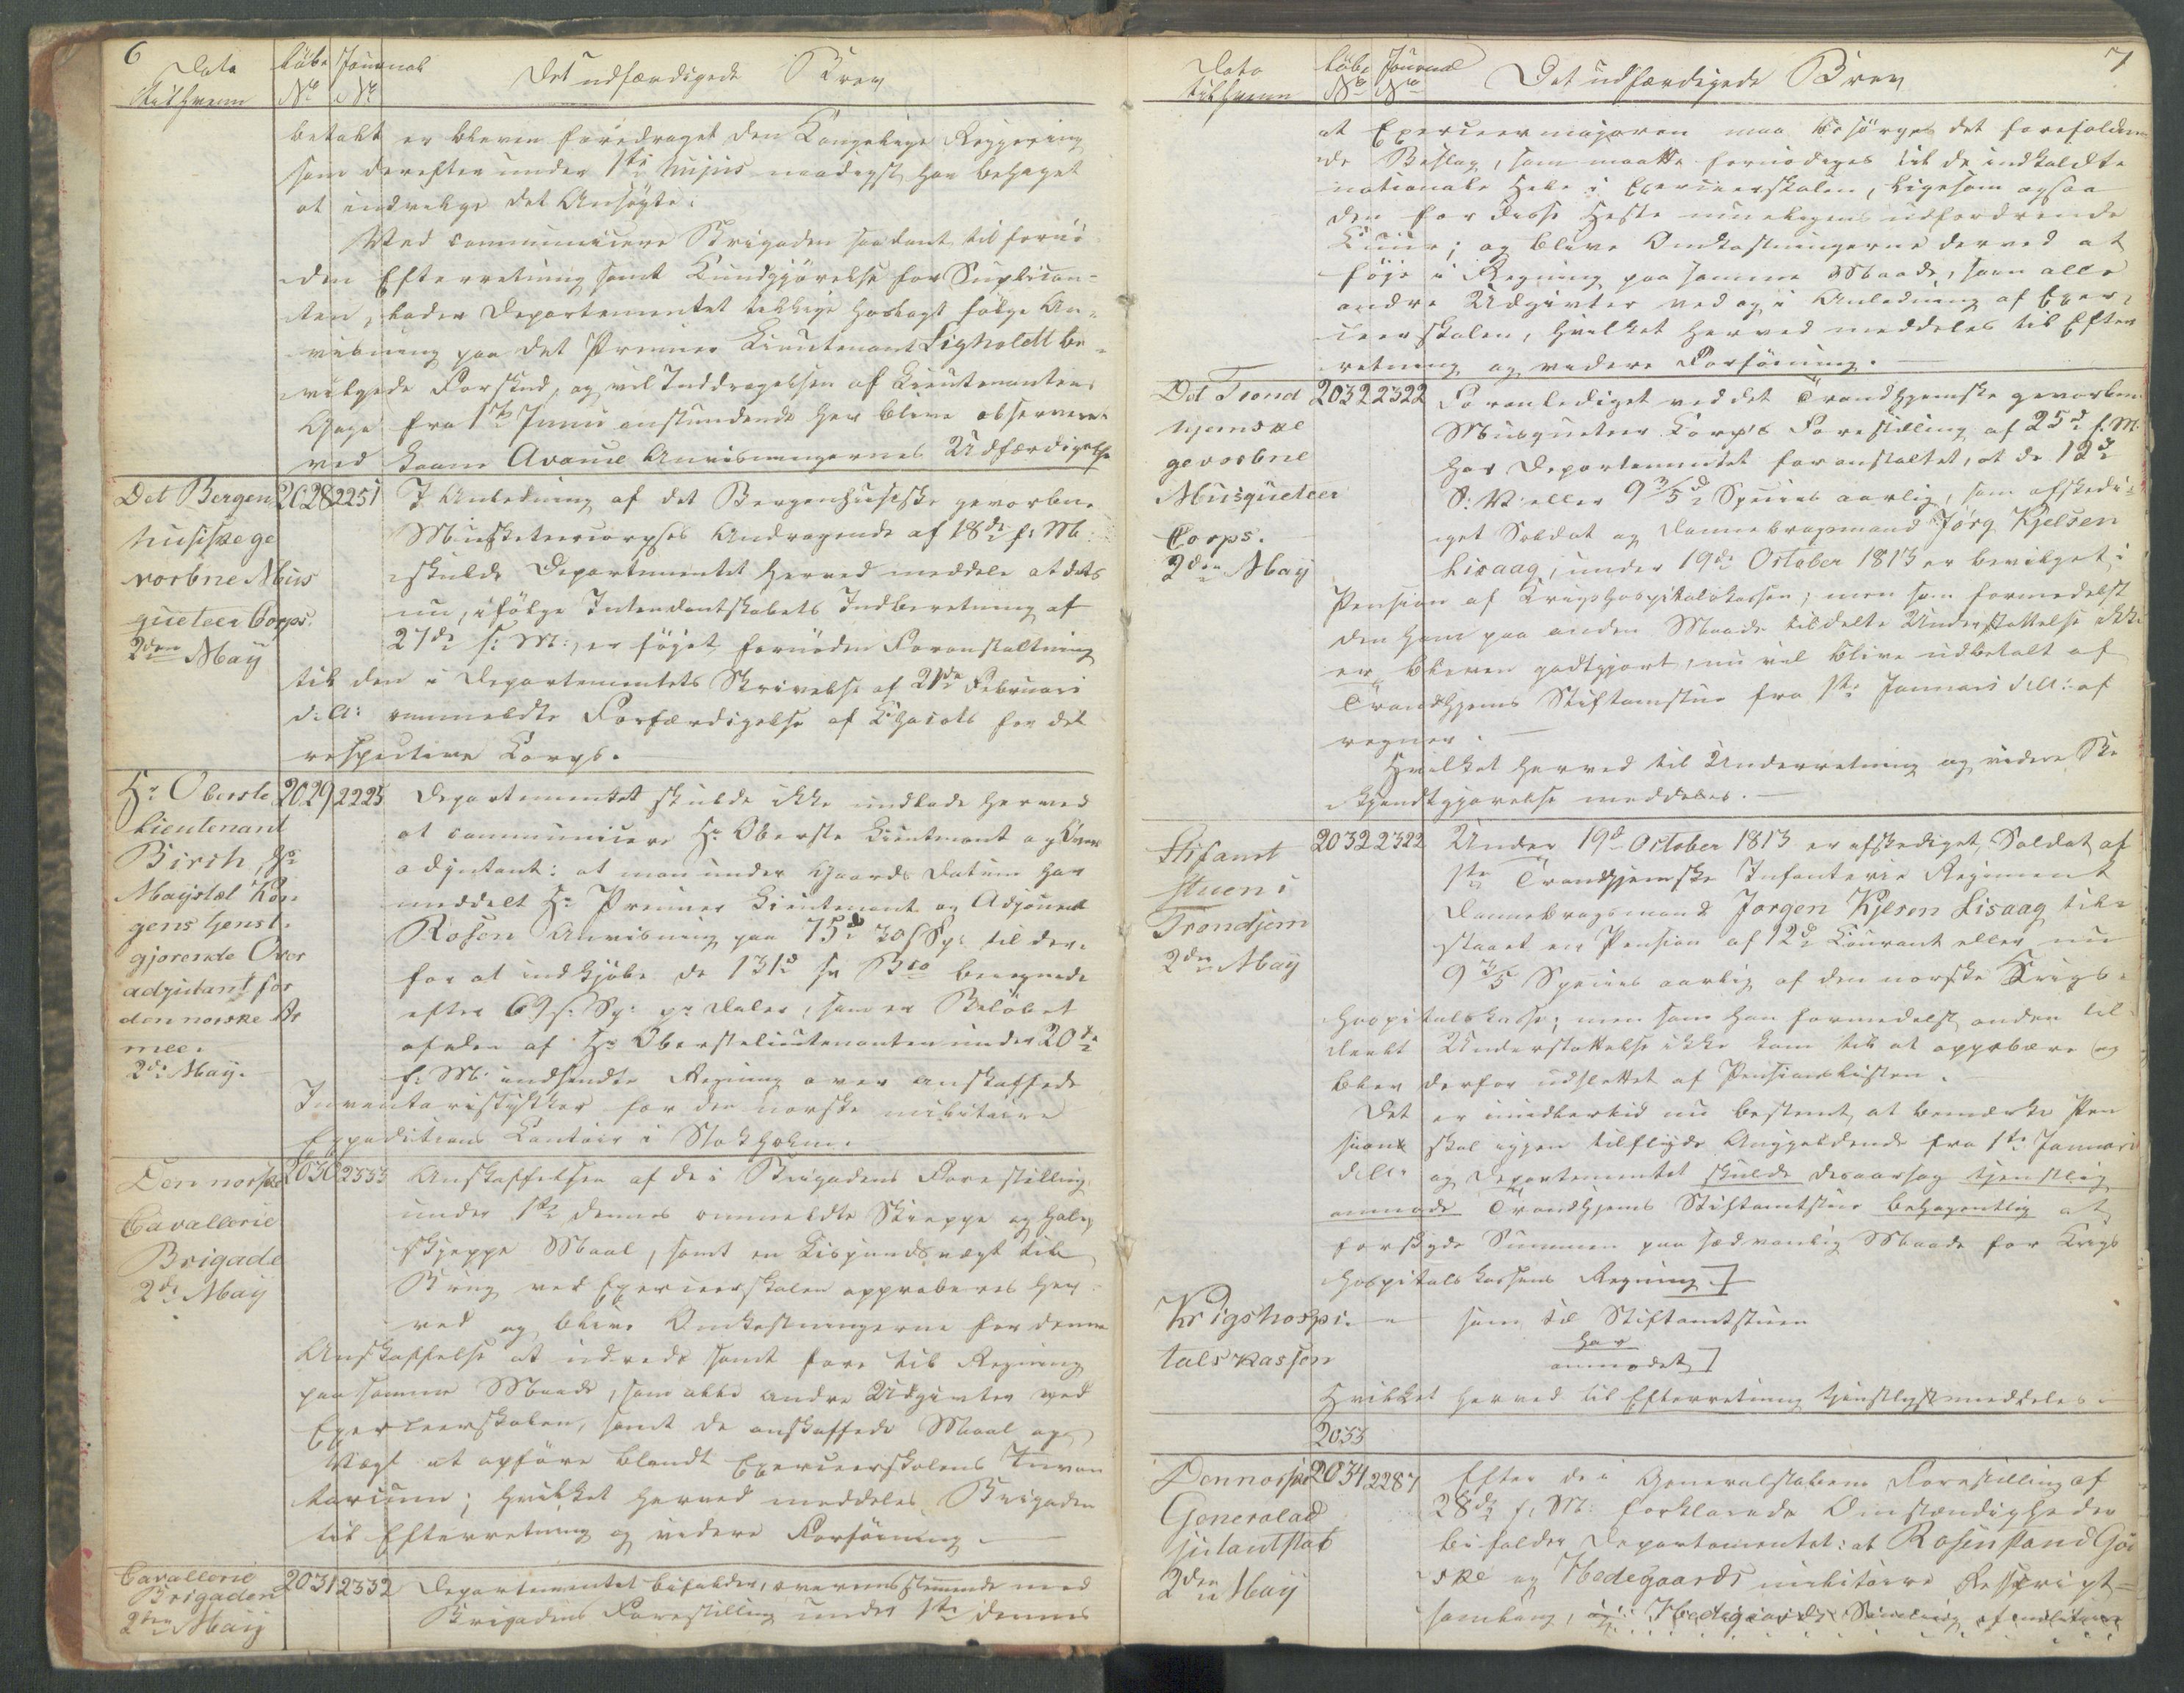 6
Dato
til hvem
Löbe
No
Journal
No
Det udfærdigede Brev
betalt er bleven foredraget den Kongelige Regjering
som derefter under 1ste hujus naadigst har behaget
at indvilge det Ansögte.
Ved communicere Brigaden saadant til fornö
den Efterretning samt Kundgjörelse for Suplican-
ten, lader Departementet tillige hoslagt fölge An-
viisning paa det Premier Lieutenant Ligholdt be-
vilgede Forskud, og vil Inddragelsen af Lieutenantens
Gage fra 1ste Junii anstundende her blive observeret
ved Avance Anviisningernes Udfærdigelse
Det Bergen
husiske ge
vorbne Mus
queteer Corps.
2den May
2028
2251
I Anledning af det Bergenhusiske gevorbne
Musketeercorpses Andragende af 18de f: M:
skulde Departementet herved meddele at dets
nu, ifölge Intendantskabets Indberetning af
27de f: M:, er föjet fornöden Foranstaltning
til den i Departementets Skrivelse af 21de Februari
d: A: ommeldte Forfærdigelse af Chacots for det
respective Corps.
Hr Oberste
Lieutenant
Birch, Hs
Maystæt Kon
gens tjenst.
gjorende Over
adjutant for
den norske Ar
mee.
2de May.
2029
2225
Departementet skulde ikke undlade herved
at communicere Hr Oberste Lieutenant og Over
adjutant: at man under Gaards Datum har
meddelt Hr Premier Lieutenant og Adjoint
Rosen Anviisning paa 75d 30 s Sp: til der-
for at indkjöbe de 131d sv Bco beregnede
efter 69 s: Sp: pr Daler, som er Belöbet
af den af Hr Oberstelieutenanten under 20de
f: M: indsendte Regning over anskaffede
Inventariistykker for den norske militaire
Expeditions Contoir i Stokholm.
Den norske
Cavallerie
Brigade
2de May
2030
2333
Anskaffelsen af de i Brigadens Forestilling
under 1ste dennes ommeldte Skieppe og halv
skjeppe Maal, samt en Lispundsvægt til
Brug ved Exerceerskolen approberes her-
ved og blive Omkostningerne for denne
Anskaffelse at udrede samt före til Regning
paa samme Maade, som alle andre Udgivter ved
Exerceerskolen, samt de anskaffede Maal og
Vægt at opföre blandt Exerceerskolens Inven
tarium; hvilket herved meddeles Brigaden
til Efterretning og videre Forföining.
Cavallerie
Brigaden
2den May
2031
2332
Departementet bifalder, overensstemmende med
Brigadens Forestilling under 1ste dennes
7
Dato
til hvem
Löbe
No
Journal
No
Det udfærdigede Brev
at Exerceermajoren maa besörge det forefalden
de Beslag, som maatte fornödiges til de indkaldte
nationale Heste i Exerceerskolen, ligesom ogsaa
den for disse Heste mueligens udfordrende
Kuur; og blive Omkostningerne derved at
föje i Regning paa samme Maade, som alle
andre Udgivter ved og i Anledning af Exer-
ceerskolen, hvilket herved meddeles til Efter
retning og videre Forföining.
Det Trond
hjemske
gevorbne
Musqueteer
Corps.
2den May
2032
2322
Foranlediget ved det Trondhjemske gevorbne
Musqueteer Corps's Forestilling af 25d f. M.
har Departementet foranstaltet, at de 12d
S: V: eller 9 3/5d Species aarlig, som afskedi-
get Soldat og Dannebrogsmand Jörg Kjelsen
Lisaag, under 19de October 1813 er bevilget i
Pension af Krigshospitalskassen; men som formedelst
den ham paa anden Maade tildelte Understöttelse ikke
er bleven godtgjort, nu vil blive udbetalt af
Trondhjems Stiftamtstue fra 1ste Januari d. A: af
regnet.
Hvilket herved til Underretning og videre Be
kjendtgjörelse meddeles.
Stifamt
stuen i
Trondjem
2den May
2032
2322
Under 19d October 1813 er afskediget Soldat af
1ste Trondhjemske Infanterie Regiment
Dannebrogsmand Jorgen Kjelsen Lisaag tile
staaet en Pension af 12d Courant eller nu
9 3/5 Species aarlig af den norske Krigs-
hospitalskasse; men som han formedelst anden til
deelt Understöttelse ikke kom til at oppebære og
blev derfor udslettet af Pensionslisten.
Det er imidlertid nu bestemt at bemældte Pen
sion skal igjen tilflyde Angjældende fra 1ste Januari
d: A: og Departementet skulde desaarsag tjenstlig
anmode Trondhjems Stiftamtstue behagentlig at
forskyde Summen paa sædvanlig Maade for Krigs
hospitalskassens Regning ]
Krigshospi-
tals Kassen
som til Stiftamtstuen
har
anmodet ]
Hvilket herved til Efterretning tjenstligst meddeles.
2033
Den norske
Generalad
jutantstab
2den May
2034
2287
Efter de i Generalstabens Forestilling af
28de f. M: forklarede Omstændigheder
bifalder Departementet: at Rosenstand Goi
ske og Hedegaards militaire Rescript-
samling, og Hedegaards Samling af militaire